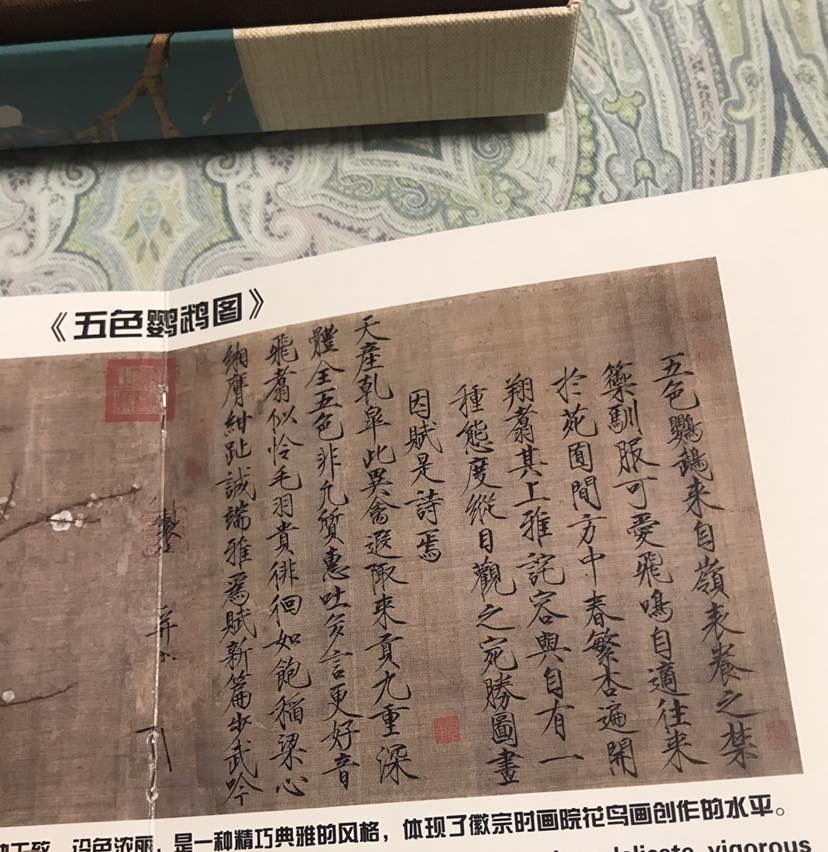 《五色鹦鹉图》
五色鸚鵡来自嶺表養之禁
籞馴服可愛飛鳴自適往来
於苑囿間方中春繁杏遍開
翔翥其上雅詫容與自有一
種態度縱目觀之宛勝圖畫
因賦是詩焉
天産乾皐此異禽遐陬来貢九重深
體全五色非凡質惠吐多言更好音
飛翥似怜毛羽貴徘徊如飽稻粱心
緗膺紺趾誠端雅為賦新篇步武吟
工致，设色浓丽，是一种精巧典雅的风格，体现了徽宗时画院花鸟画创作的水平。
delicate, vigorous